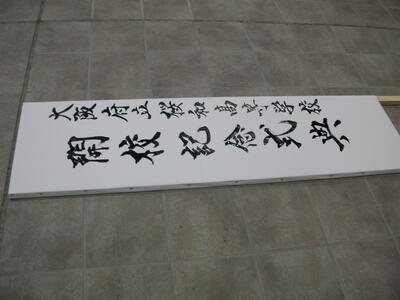 大阪府立桜和高等学校
開校記念式典